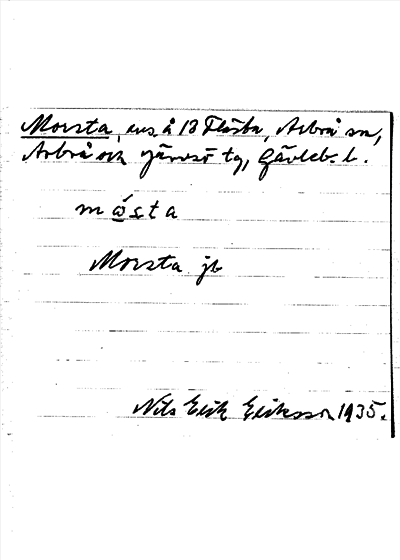 Morsta, ens å 13 Flästa, Arbrå sn,
Arbrå och Järvsö tg, Gävleb. l.
mo̲sta
Morsta jb
Nils Erik Eriksson 1935.